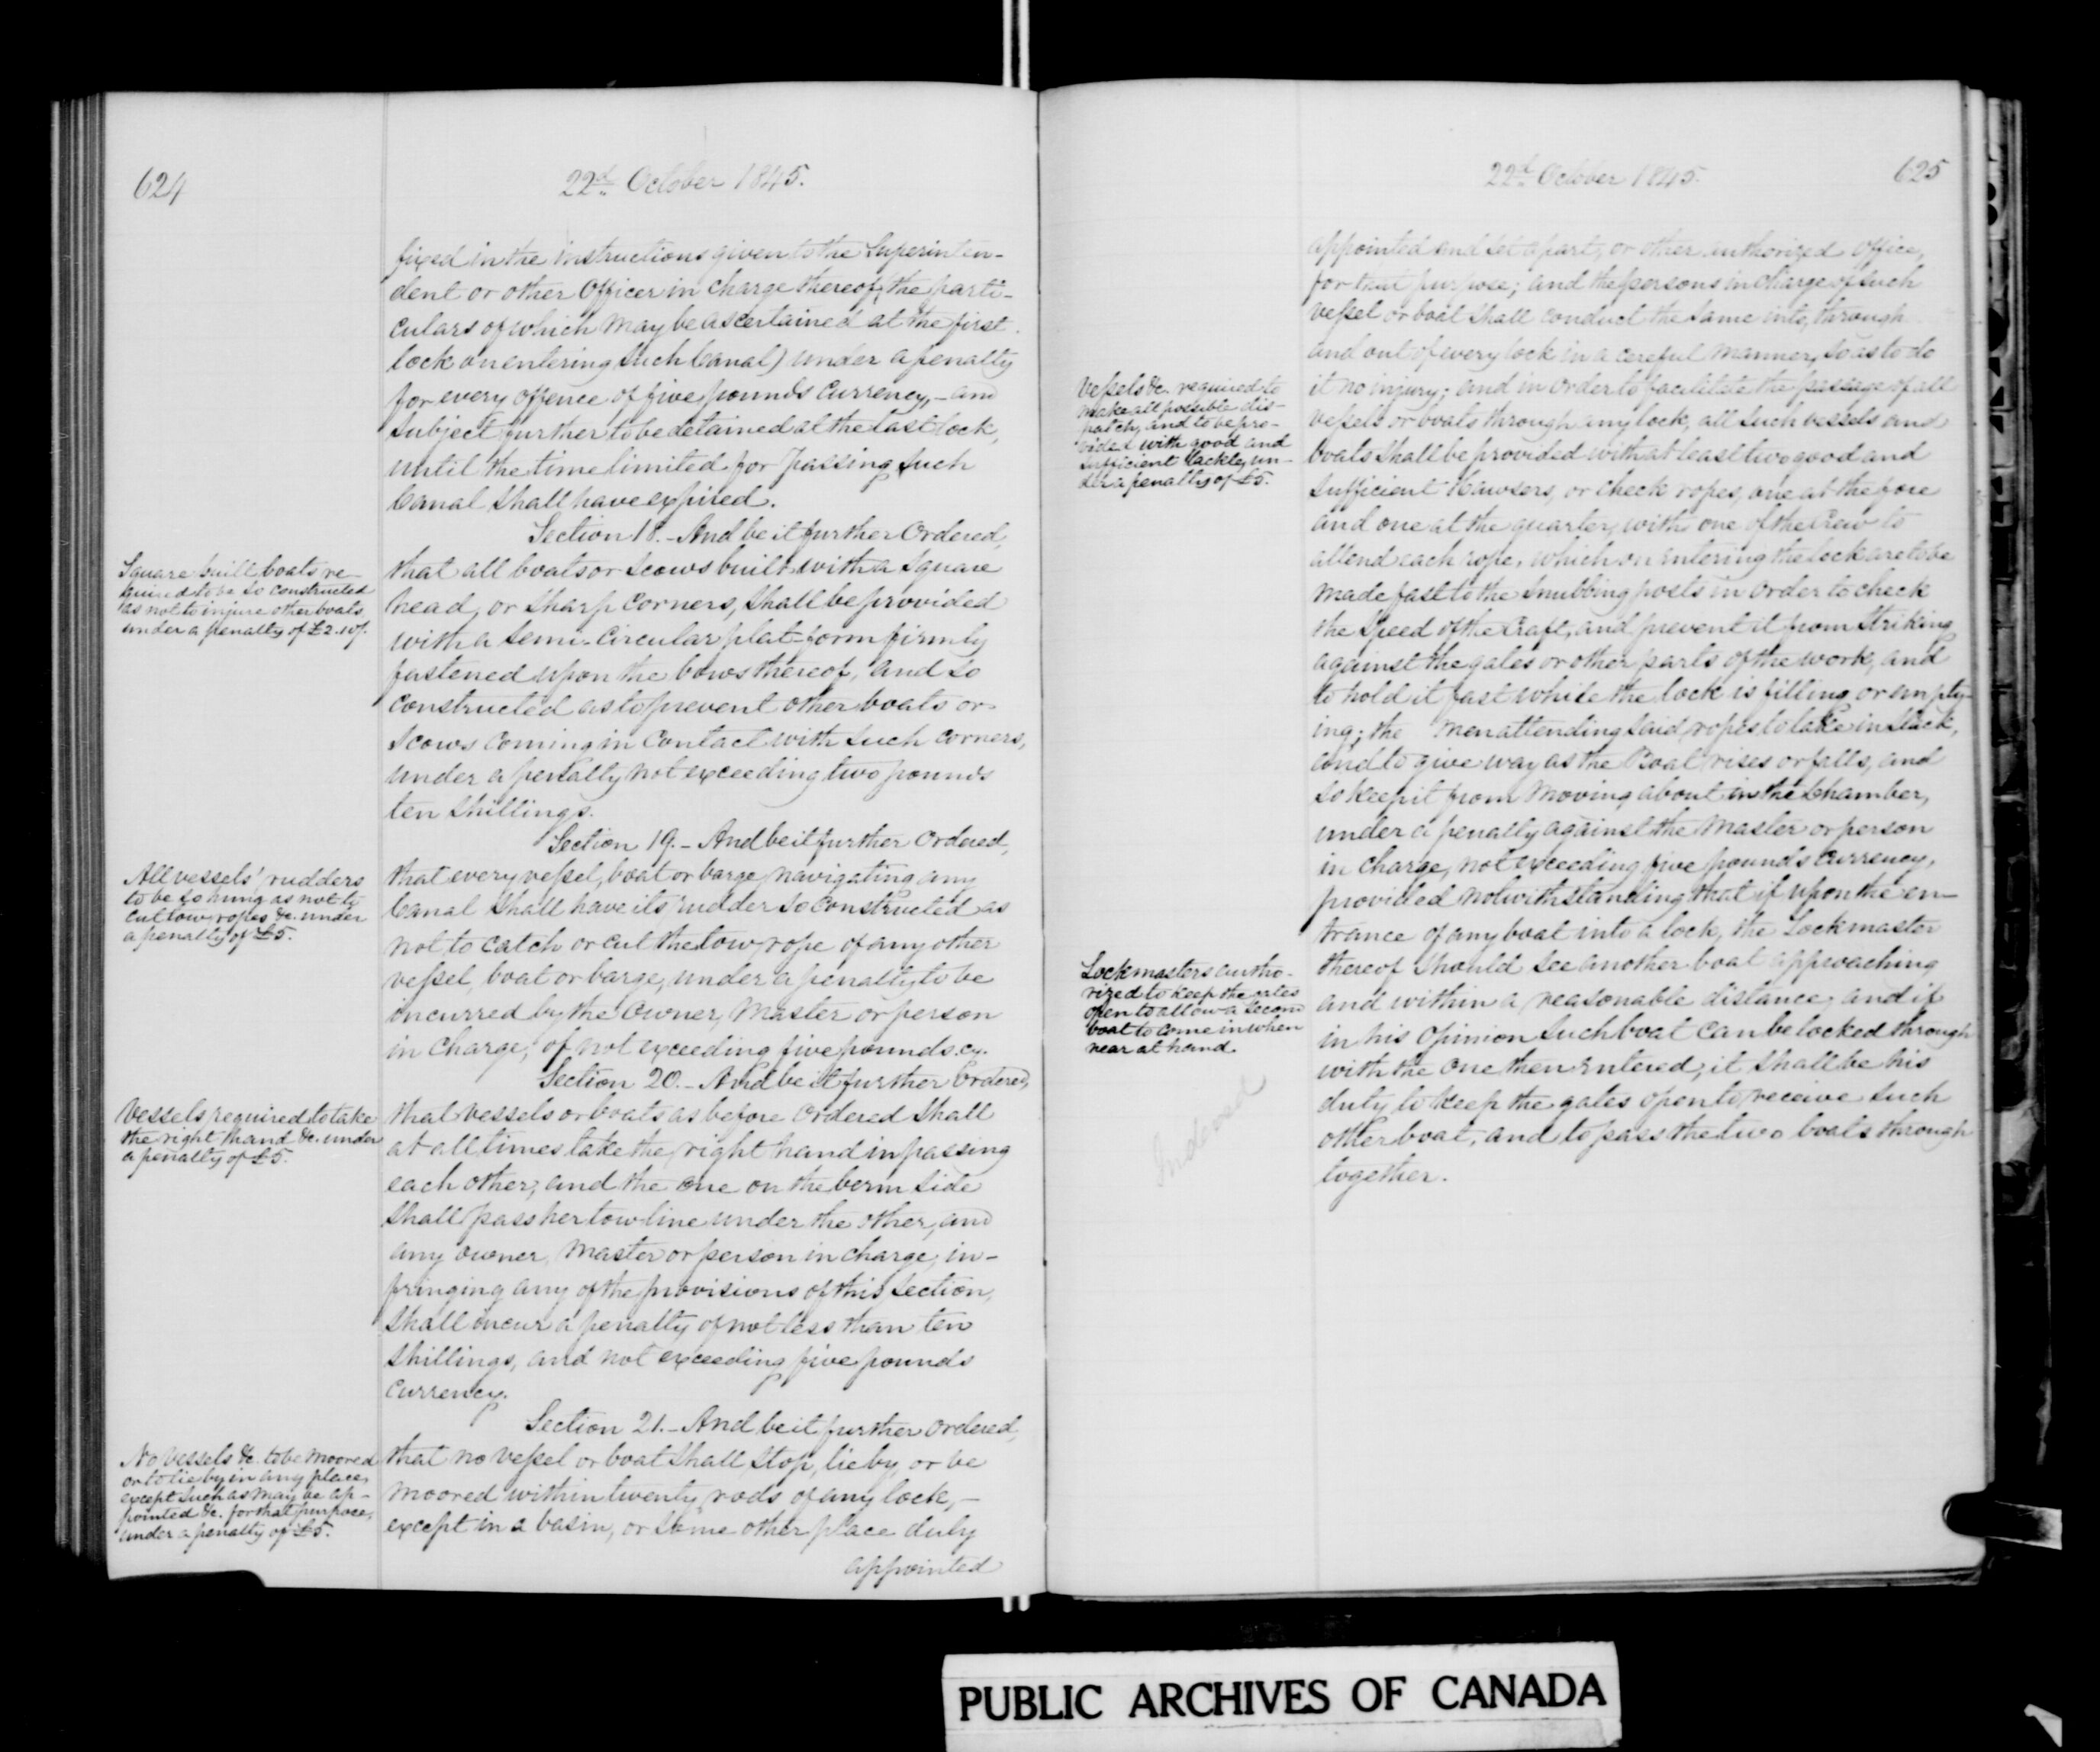 624
22d October 1845.
fixed in the instructions given to the Superinten-
dent or other Officer in charge thereof, the parti-
culars of which may be ascertained at the first
lock on entering such Canal) under a penalty
for every offence of five pounds Currency,- and
subject further to be detained at the last lock,
until the time limited for passing such
Canal shall have expired.
Section 18. - And be it further Ordered,
Square built boats re-
quired to be so constructed
as not to injure other boats
under a penalty of £2.10/.
that all boats or Scows built with a Square
head, or sharp corners, shall be provided
with a semi-circular plat-form firmly
fastened upon the bows thereof, and so
constructed as to prevent other boats or
scows coming in contact with such corners,
under a penalty not exceeding two pounds
ten shillings.
Section 19. - And be it further ordered,
All vessels' rudders
to be so hung as not to
cut tow ropes &c. under
a penalty of £5.
that every vessel, boat or barge navigating any
Canal shall have its rudder so constructed as
not to catch or cut the tow rope of any other
vessel, boat or barge, under a penalty to be
incurred by the Owner, Master or person
in charge, of not exceeding five pounds cy.
Section 20. - And be it further Ordered,
Vessels required to take
the right hand &c. under
a penalty of £5.
that vessels or boats as before ordered shall
at all times take the right hand in passing
each other; and the one on the berm side
shall pass her tow line under the other, and
any owner, Master or person in charge, in-
fringing any of the provisions of this section,
shall incur a penalty of not less than ten
shillings, and not exceeding five pounds
currency.
Section 21. - And be it further ordered,
No vessels &c. to be moored
or to lie by in any place,
except such as may be ap-
pointed &c. for that purpose,
under a penalty of £5.
that no vessel or boat shall stop, lie by, or be
moored within twenty rods of any lock,-
except in a basin, or some other place duly
appointed
22d October 1845.
625
appointed and set apart, or other authorized office,
for that purpose; and the persons in charge of such
vessel or boat shall conduct the same into, through
and out of every lock in a careful manner, so as to do
Vessels &c. required to
make all possible dis-
patch, and to be pro-
vided with good and
sufficient tackle, un-
der a penalty of £5.
it no injury; and in order to facilitate the passage of all
vessels or boats through any lock, all such vessels and
boats shall be provided with at least two good and
sufficient Hawsers, or check ropes, one at the fore
and one at the quarter, with one of the Crew to
attend each rope, which on entering the lock are to be
made fast to the snubbing posts in order to check
the speed of the craft, and prevent it from striking
against the gates or other parts of the work, and
to hold it fast while the lock is filling or empty-
ing; the men attending said ropes to take in slack,
and to give way as the Boat rises or falls, and
so keep it from moving about in the Chamber,
under a penalty against the Master or person
in charge, not exceeding five pounds currency,
provided notwithstanding that if upon the en-
trance of any boat into a lock, the Lockmaster
Lockmasters autho-
rized to keep the gates
open to allow a second
boat to come in when
near at hand.
thereof should see another boat approaching
and within a reasonable distance, and if
in his Opinion such boat can be locked through
with the one then entered, it shall be his
duty to keep the gates open to receive such
other boat, and to pass the two boats through
together.
Indexed
PUBLIC ARCHIVES OF CANADA